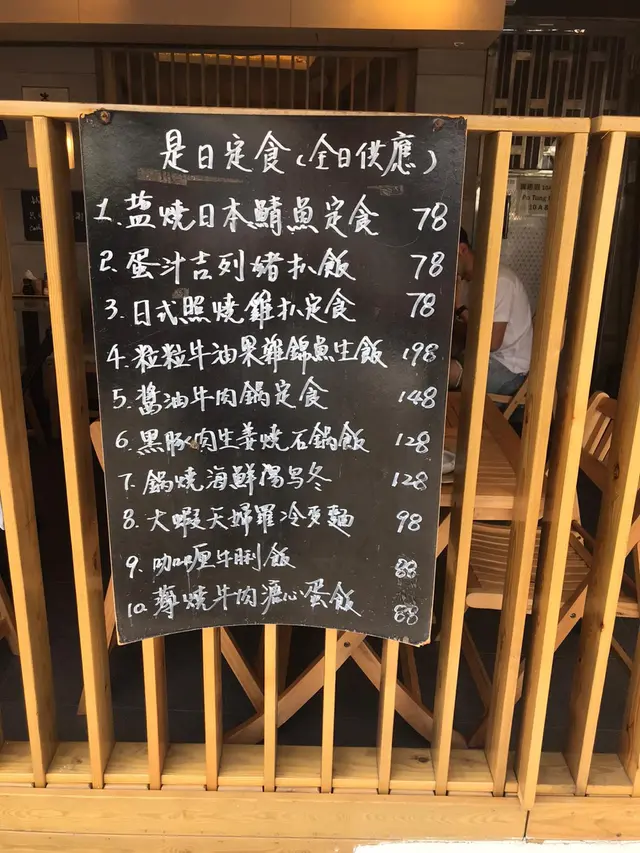 是日定食(全日供應)
1. 盐燒日本鯖魚定食 78
2. 蛋汁吉列猪扒飯 78
3. 日式照燒雞扒定食 78
4. 粒粒牛油果雜錦魚生飯 198
5. 醬油牛肉鍋定食 148
6. 黑豚肉生姜燒石鍋飯 128
7. 鍋燒海鮮湯烏冬 128
8. 大蝦天婦羅冷麥麵 98
9. 咖喱牛脷飯 88
10. 薄燒牛肉溏心蛋飯 88